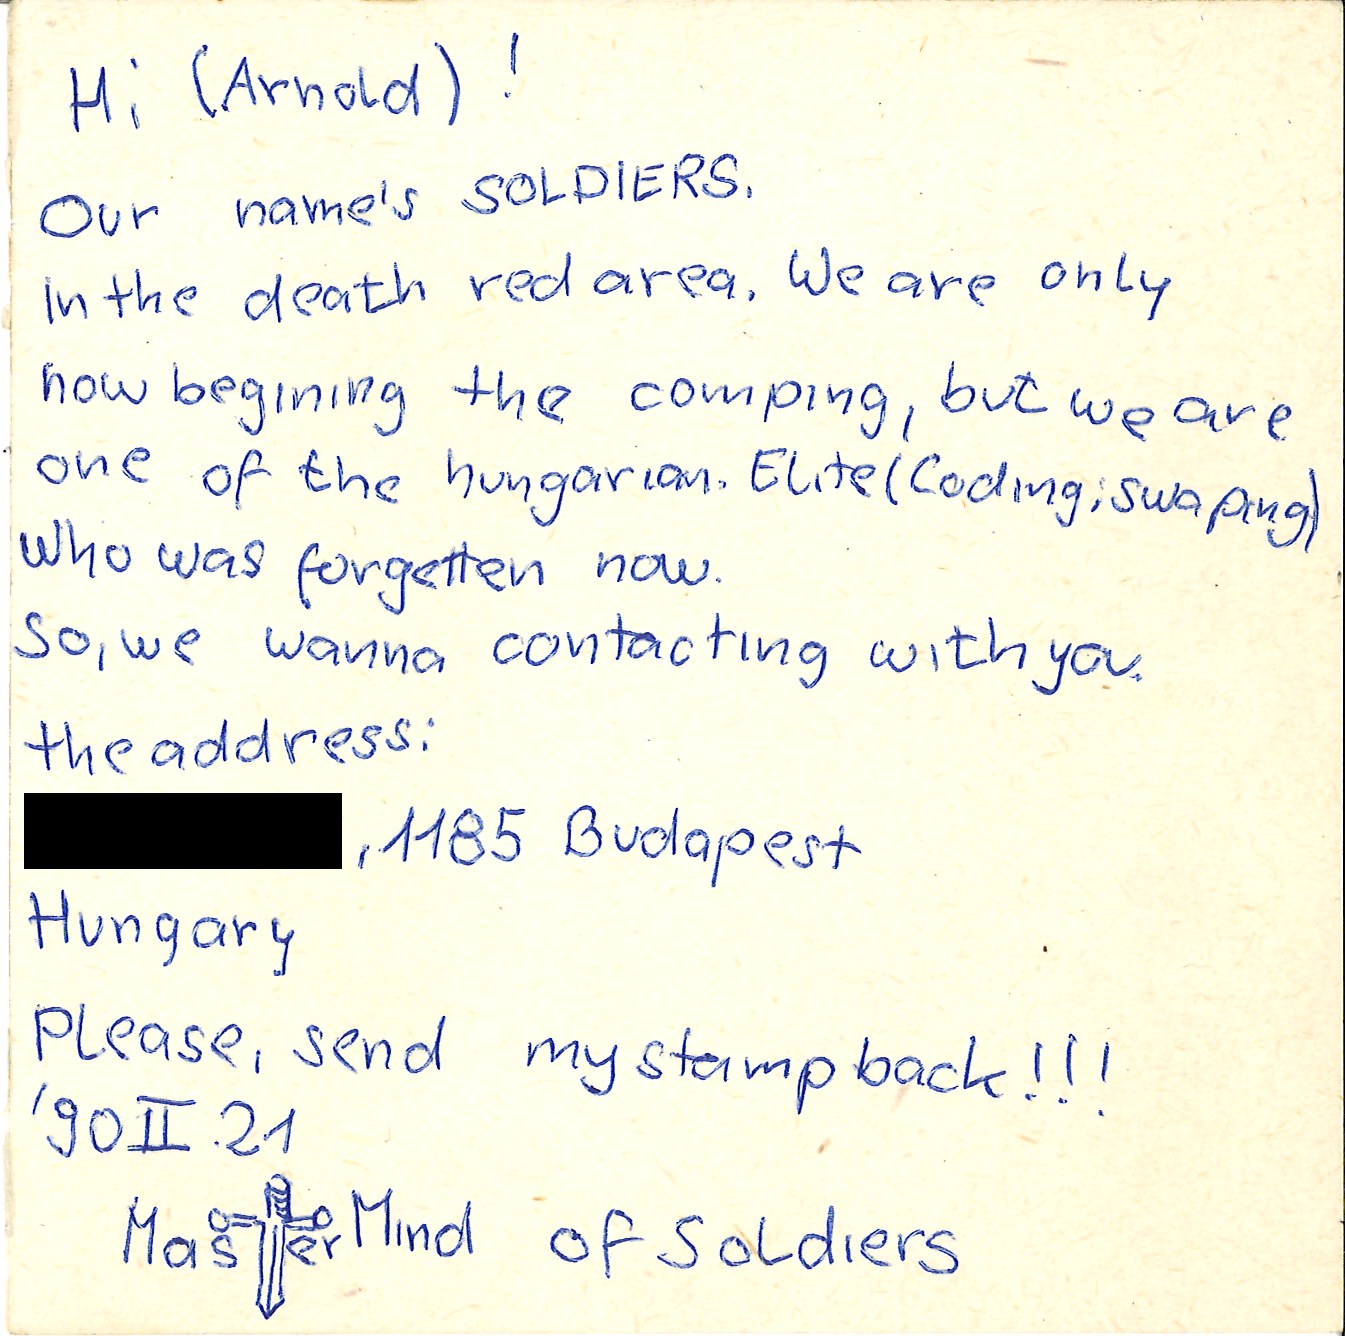 Hi (Arnold)!
Our name's SOLDIERS.
In the death red area. We are only
now begining the comping, but we are
one of the hungarian. Elite (Coding; swaping)
who was forgetten now.
So, we wanna contacting with you.
the address:
, 1185 Budapest
Hungary
Please, send my stamp back!!!
'90 II. 21
MasTerMind of Soldiers